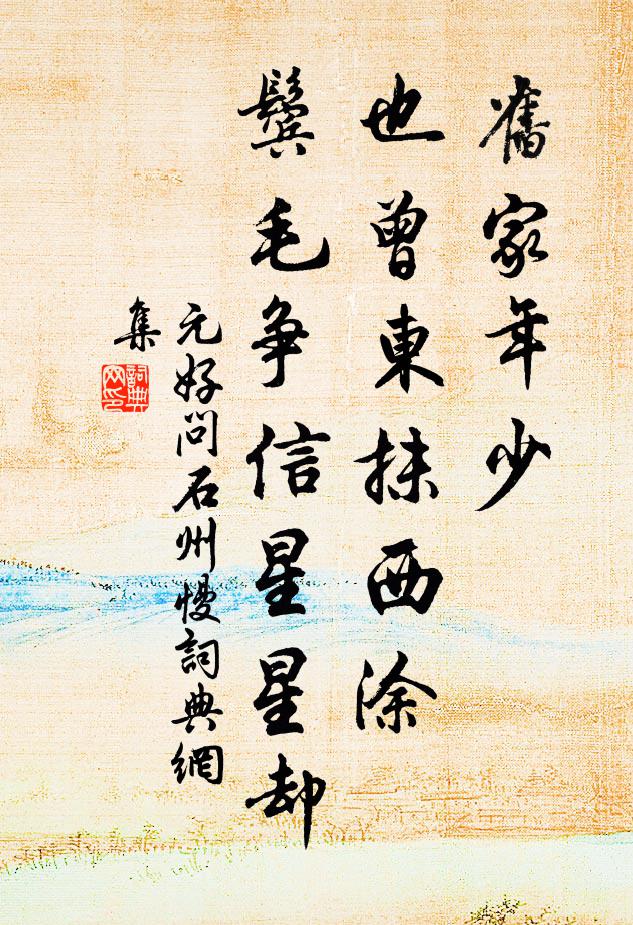 舊家年少
也曾東抹西涂
鬓毛争信星星却
元好问石州慢詞典網
集
詞典
网印